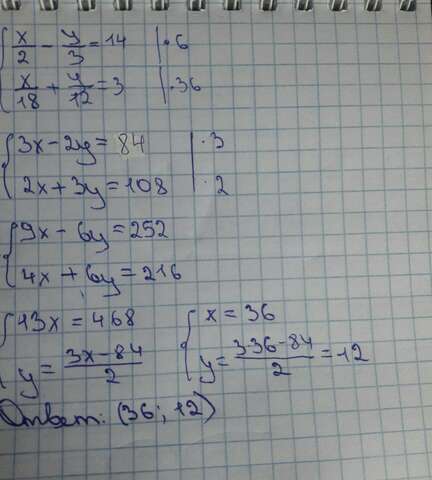 { x/2 - y/3 = 14 | ·6
x/18 + y/12 = 3 | ·36
{ 3x - 2y = 84 | ·3
2x + 3y = 108 | ·2
{ 9x - 6y = 252
4x + 6y = 216
{ 13x = 468 { x = 36
y = (3x-84)/2 y = (3·36-84)/2 = 12
Ответ: (36; 12)